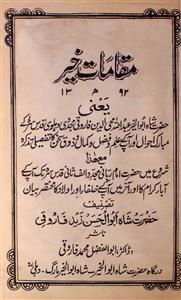 مقامات خیر
۱۳ ھ ۹۲
یعنی
حضرت شاہ ابوالخیر عبداللہ محی الدین فاروقی مجددی دہلوی قدس سرہ کے
مبارک احوال اور آپ کے علم و فضل و کمال
معہذا
شروع میں حضرت امام ربانی مجدد الف ثانی قدس سرہ تک آپ کے
آباء کرام کا اور آخر میں آپ کے خلفاء اور اولاد کا مختصر بیان
تصنیف
حضرت شاہ ابوالحسن زید فاروقی
ناشر
ڈاکٹر ابوالفضل محمد فاروقی
درگاہ حضرت شاہ ابوالخیر، شاہ ابوالخیر مارگ، دہلی